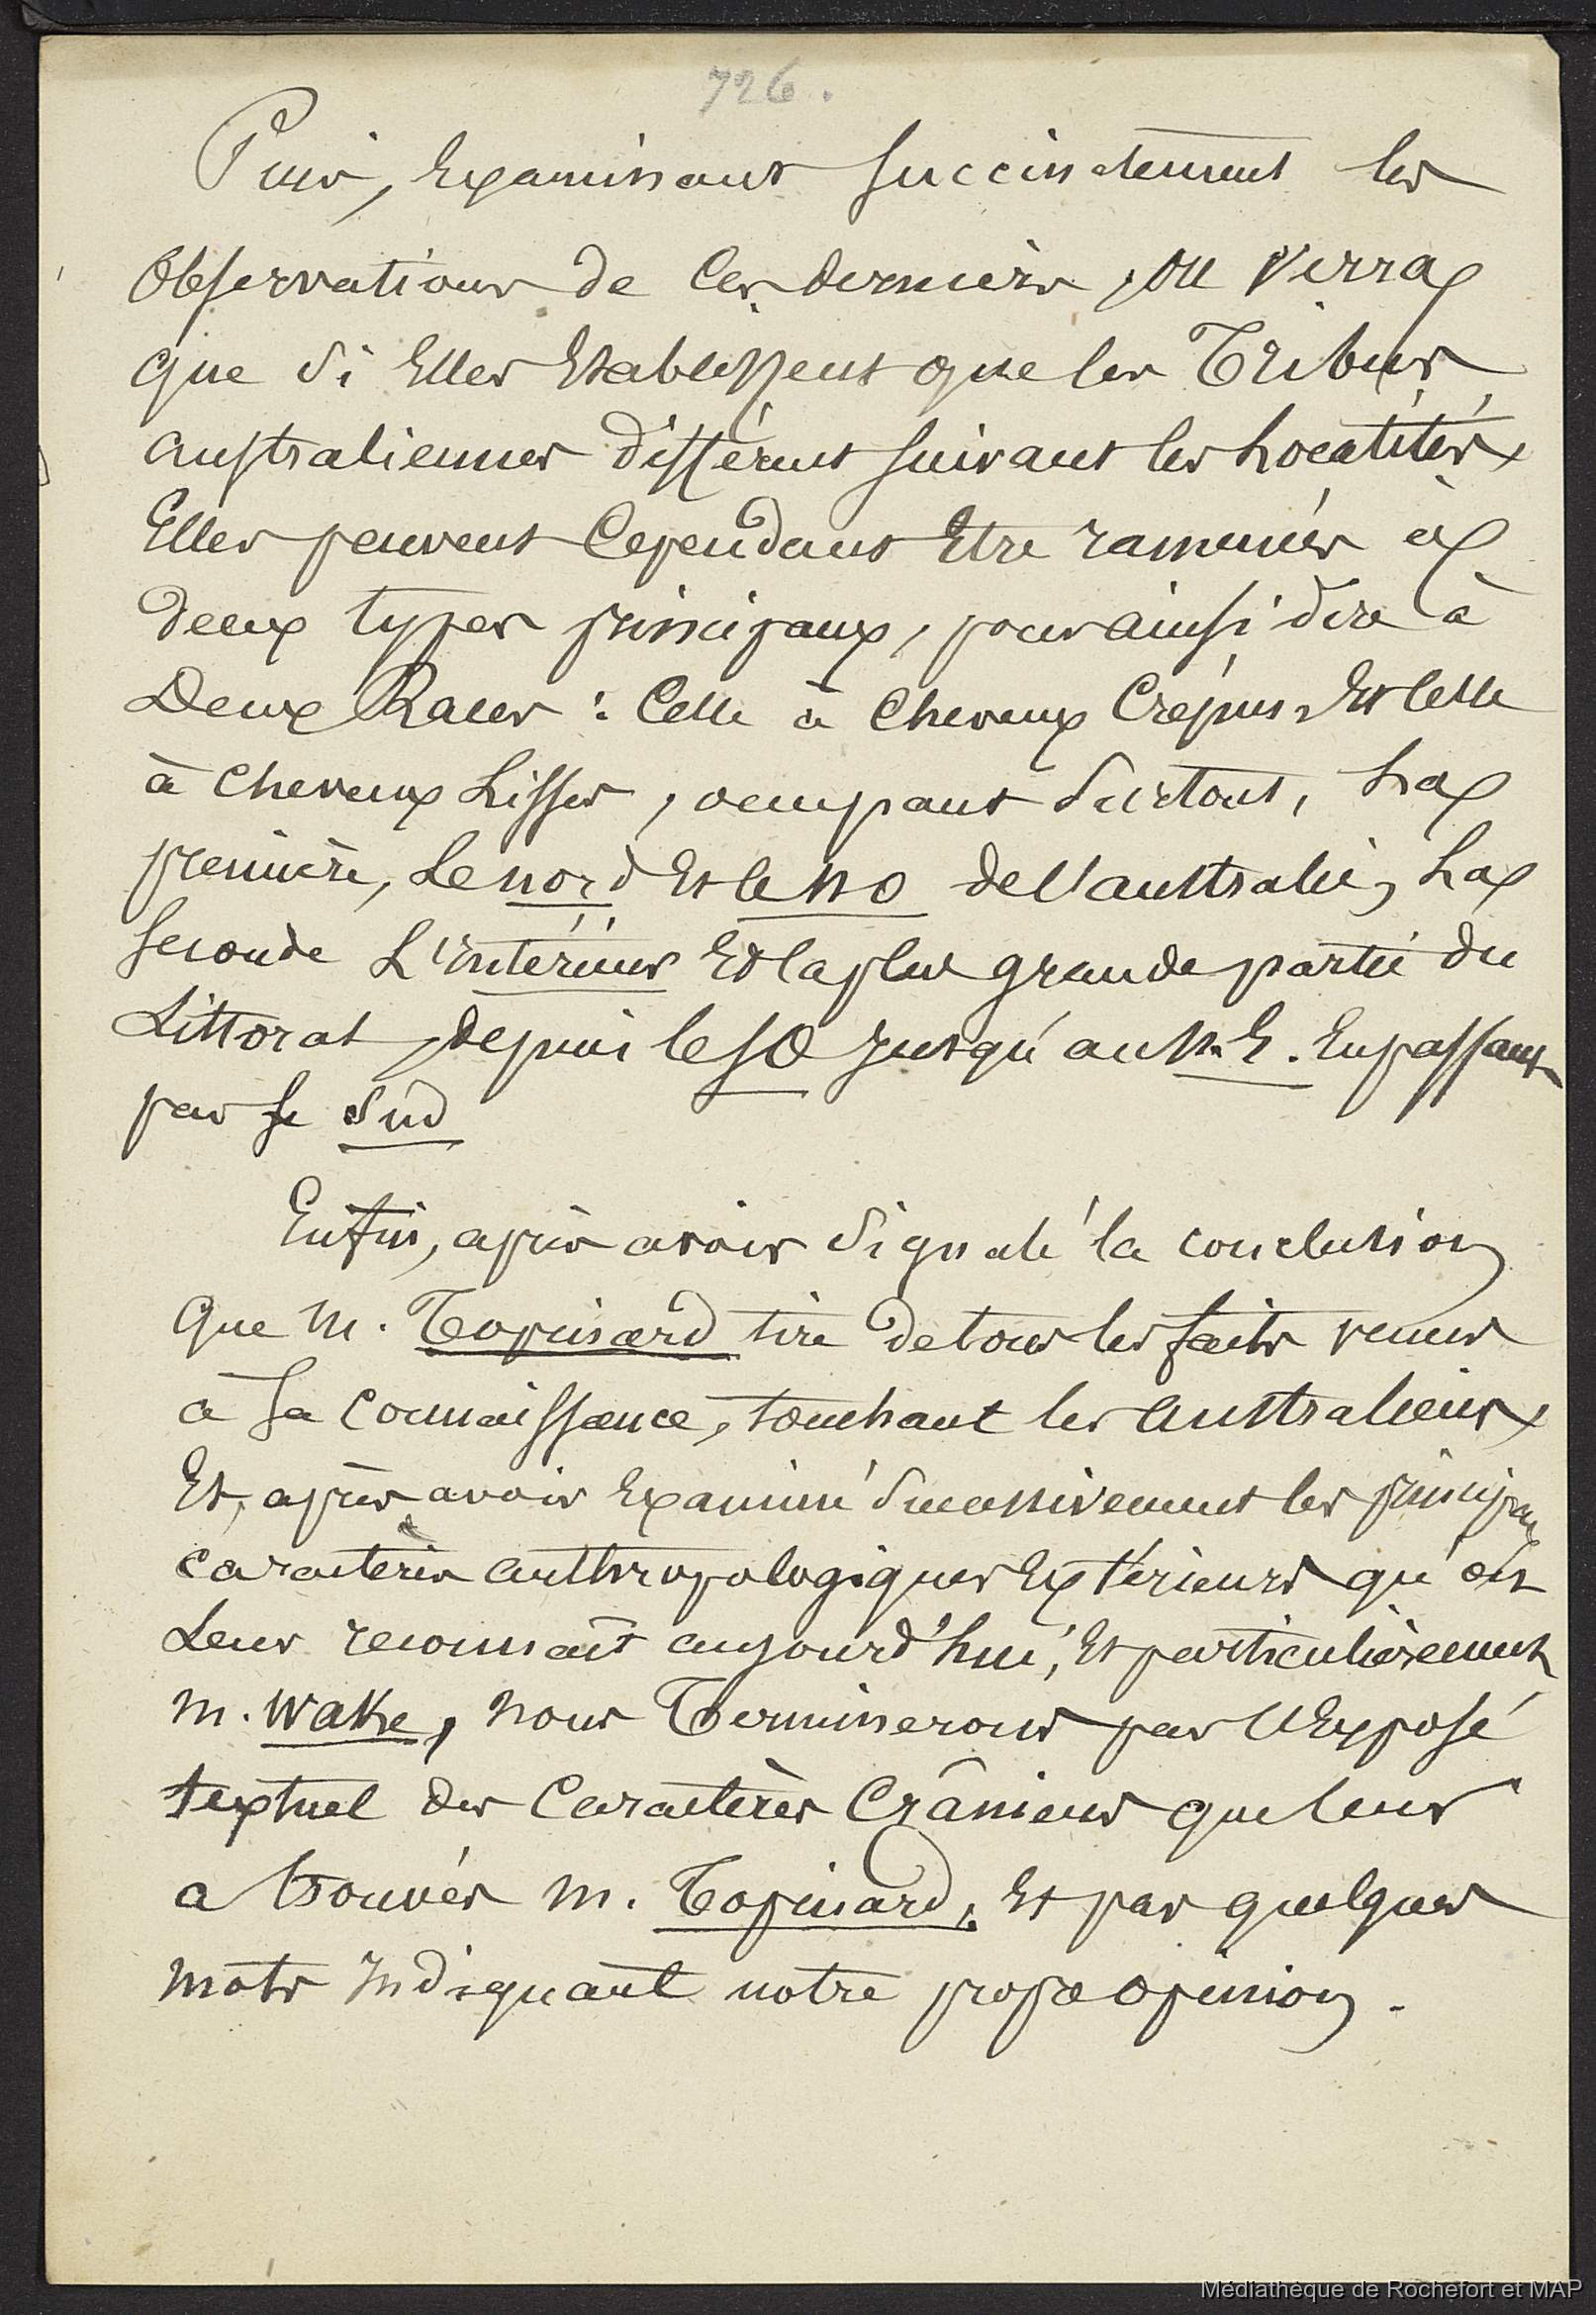 726.
Puis, Examinant succinctement les
Observations de ces derniers, on verra
que si Elles Etablissent que les Tribus
australiennes différent suivant les Localités,
Elles peuvent Cependant Etre ramenées à
deux types principaux, pour ainsi dire à
Deux Races : Celle à Cheveux Crépus, Et celle
à Cheveux Lisses, occupant surtout, La
première, Le nord Et le NO de l'australie, La
seconde L'intérieur Et la plus grande partie du
Littoral, depuis le SO jusqu'au N.E. En passant
par le Sud
Enfin, après avoir signalé la conclusion
que M. Topinard tire de tous les faits venus
à sa connaissance, touchant les australiens,
Et, après avoir Examiné successivement les principaux
caractères anthropologiques Extérieurs qu'on
Leur reconnaît aujourd'hui, Et particulièrement
M. Wake, nous Terminerons par l'Exposé
textuel des Caractères Crâniens que leur
a trouvés M. Topinard, Et par quelques
mots Indiquant notre propre opinion.
Médiathèque de Rochefort et MAP